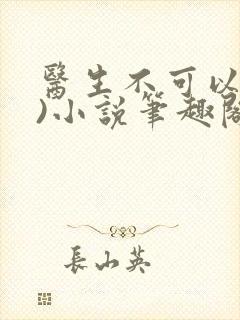 醫生不可以
)小説筆趣閣
長山英